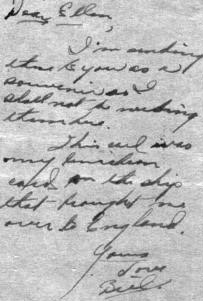 Dear Ellen,
I'm sending
these to you as a
souvenir as I
shall not be needing
them here.
This card was
my luncheon
card on the ship
that brought me
over to England.
Yours
Love
Bill